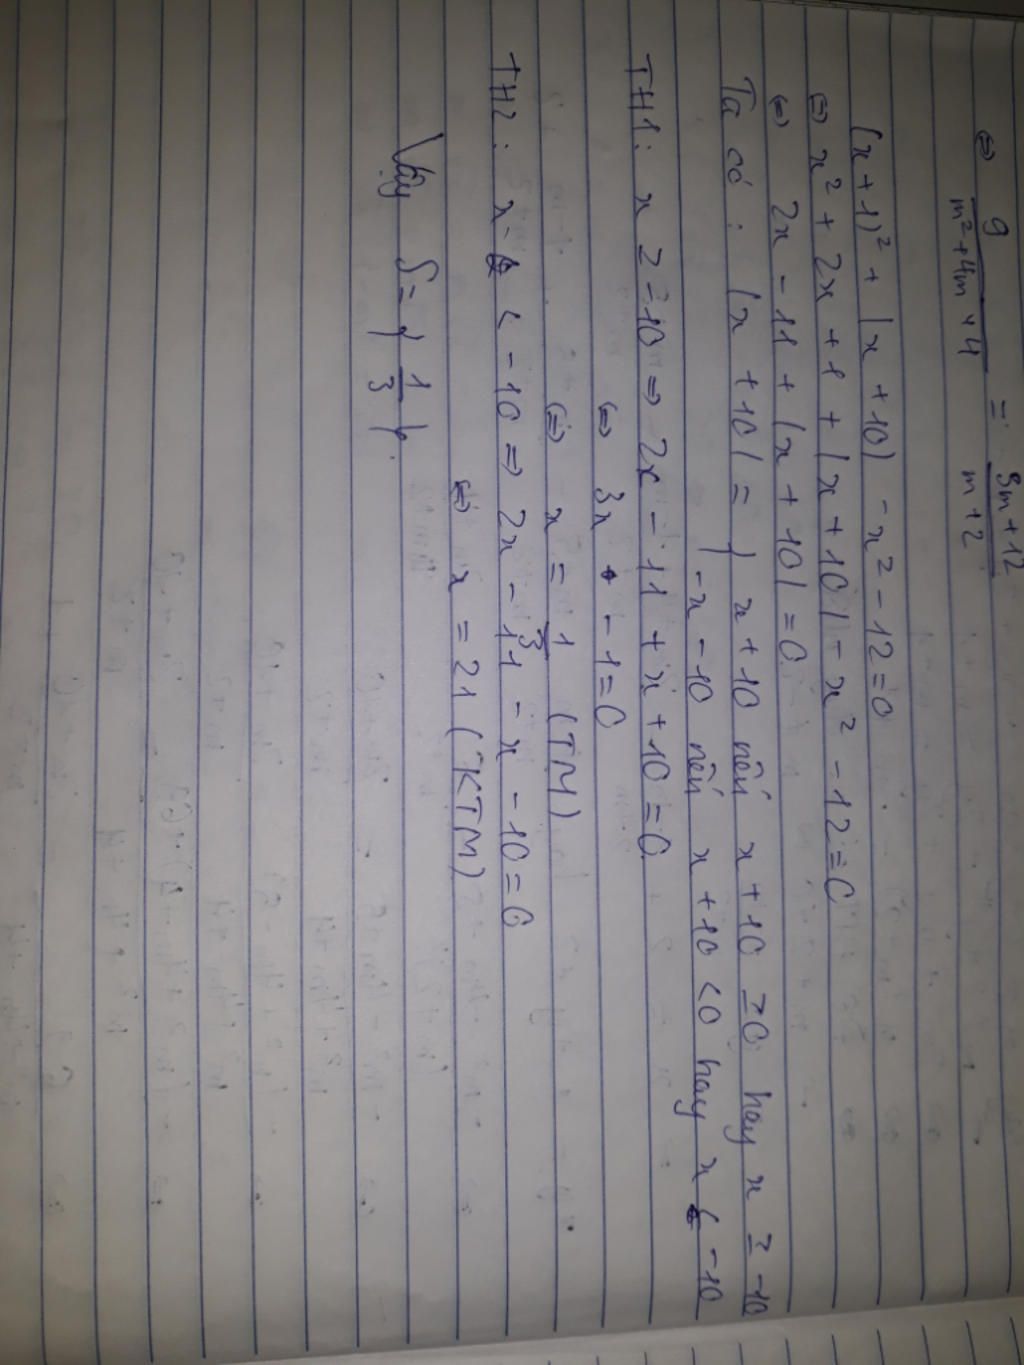 ⇔ 9/(m²+4m+4) = (3m+12)/(m+2)
(x+1)² + |x+10| - x² - 12 = 0
⇔ x² + 2x + 1 + |x+10| - x² - 12 = 0
⇔ 2x - 11 + |x+10| = 0
Ta có : |x+10| = { x+10 nếu x+10 ≥ 0 hay x ≥ -10
{ -x-10 nếu x+10 < 0 hay x < -10
TH1: x ≥ -10 ⇒ 2x - 11 + x + 10 = 0
⇔ 3x - 1 = 0
⇔ x = 1/3 (TM)
TH2: x < -10 ⇒ 2x - 11 - x - 10 = 0
⇔ x = 21 (KTM)
Vậy S = {1/3}.